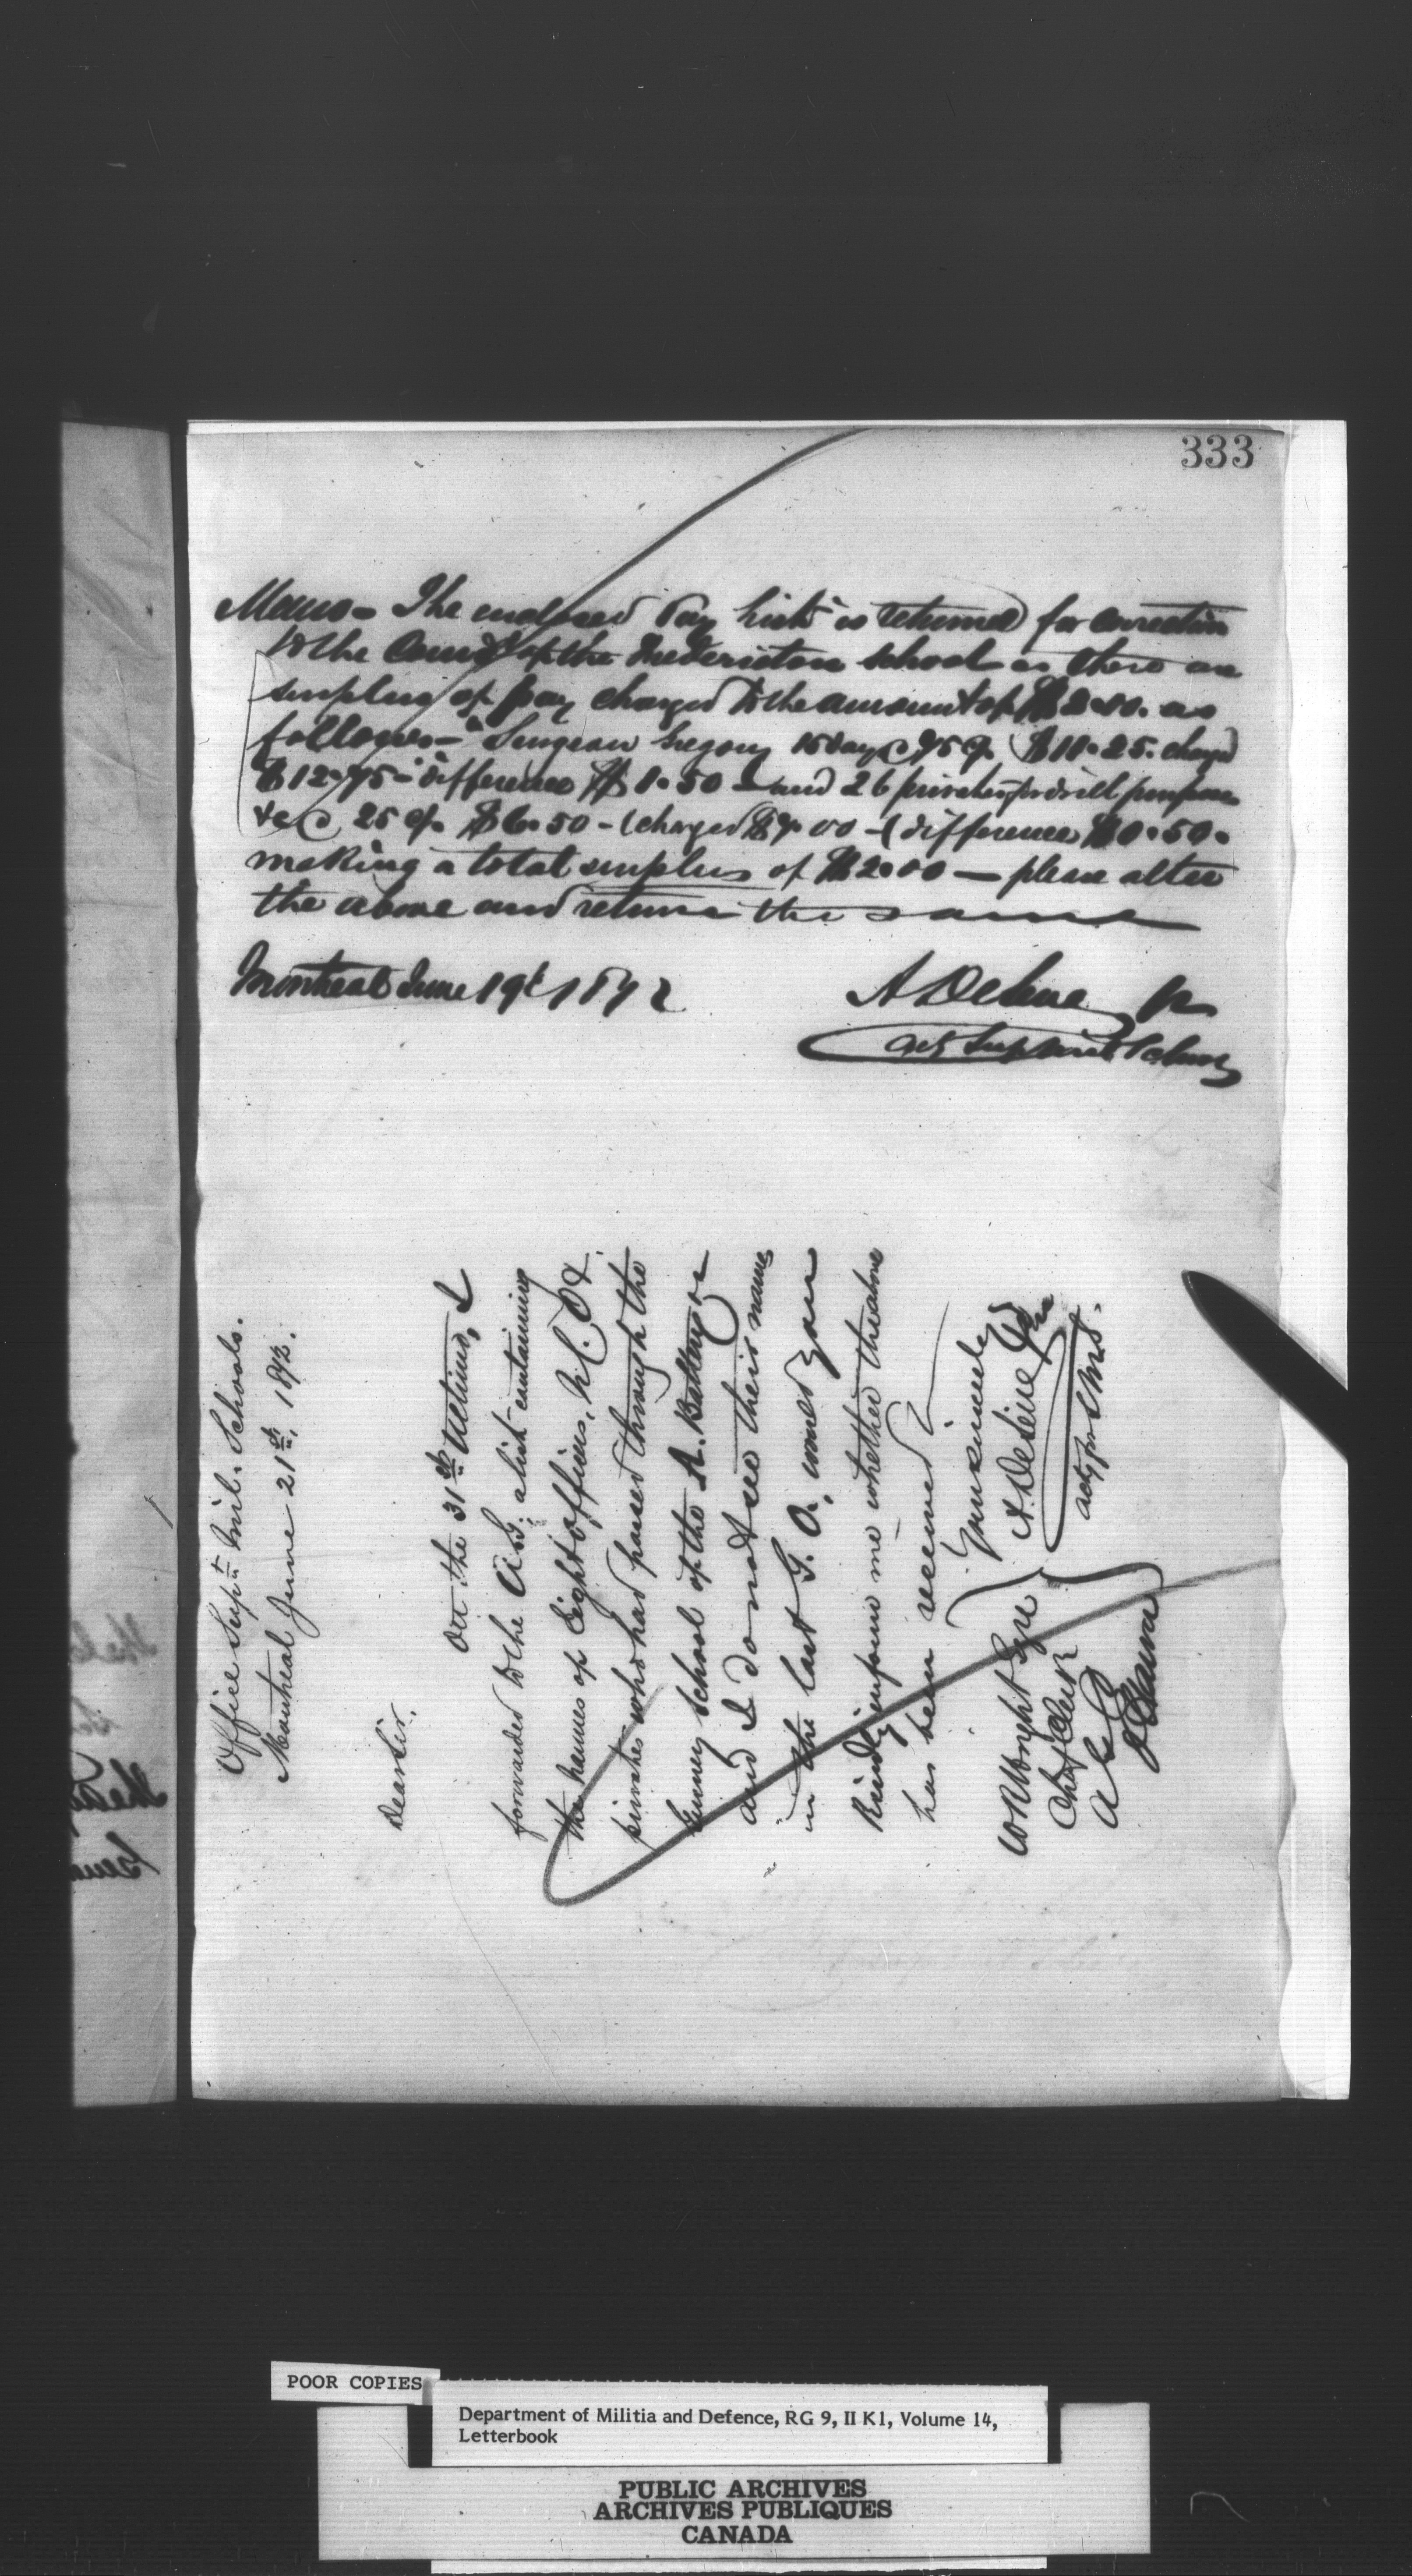 333
Memo - The enclosed Pay List is returned for correction
to the Comdt of the Fredericton School as there are
surplus of pay charged to the amount of $2.00. as
follows - Surgeon Gregory 15 days @ 75 c. $11.25. charged
$12.75 - difference $1.50 - and 26 privates for drill purposes
&c @ 25 c. $6.50 - (charged $7.00 - (difference $0.50.
making a total surplus of $2.00 - please alter
the above and return the same
Montreal June 19th 1872
A DeLine Jr
Office Supt. Mil. Schools.
Montreal June 21st, 1872.
Dear Sir,
On the 31st Ultimo, I
forwarded to the A.G. a list containing
the names of Eight officers, N.C.O. &
privates who had passed through the
Gunnery School of the A. Battery
and I do not see their names
in the last G. O., would you
Kindly inform me whether the above
has been received?
Yours sincerely
A. DeLine Jr
actg for S.M.S.
W R Wright Esqre
Chief Clerk
Ottawa
POOR COPIES
Department of Militia and Defence, RG 9, II K1, Volume 14,
Letterbook
PUBLIC ARCHIVES
ARCHIVES PUBLIQUES
CANADA